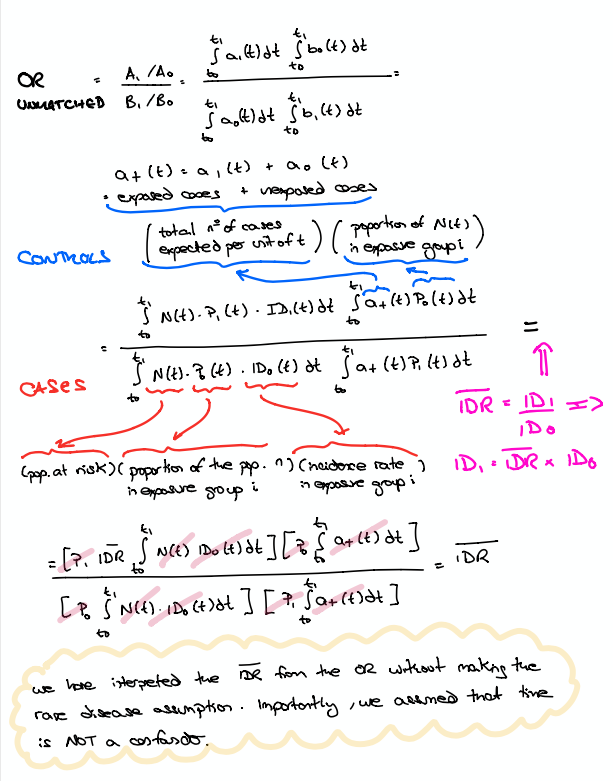 OR = A₁/A₀ = ∫t₀^t₁ a₁(t)dt ∫t₀^t₁ b₀(t)dt =
UNMATCHED B₁/B₀ ∫t₀^t₁ a₀(t)dt ∫t₀^t₁ b₁(t)dt
a+(t) = a₁(t) + a₀(t)
= exposed cases + unexposed cases
CONTROLS (total nº of cases expected per unit of t) (proportion of N(t) in exposure group i)
∫t₀^t₁ N(t)·P₁(t)·ID₁(t)dt ∫t₀^t₁ a+(t)P₀(t)dt
= =
∫t₀^t₁ N(t)·P₀(t)·ID₀(t)dt ∫t₀^t₁ a+(t)P₁(t)dt
CASES
IDR = ID₁/ID₀ =>
ID₁ = IDR × ID₀
(pop. at risk)(proportion of the pop. n)(incidence rate)
in exposure group i in exposure group i
= [P₁ IDR ∫t₀^t₁ N(t) ID₀(t)dt][P₀ ∫t₀^t₁ a+(t)dt] = IDR
[P₀ ∫t₀^t₁ N(t)·ID₀(t)dt][P₁ ∫t₀^t₁ a+(t)dt]
we have interpreted the IDR from the OR without making the
rare disease assumption. Importantly, we assumed that time
is NOT a